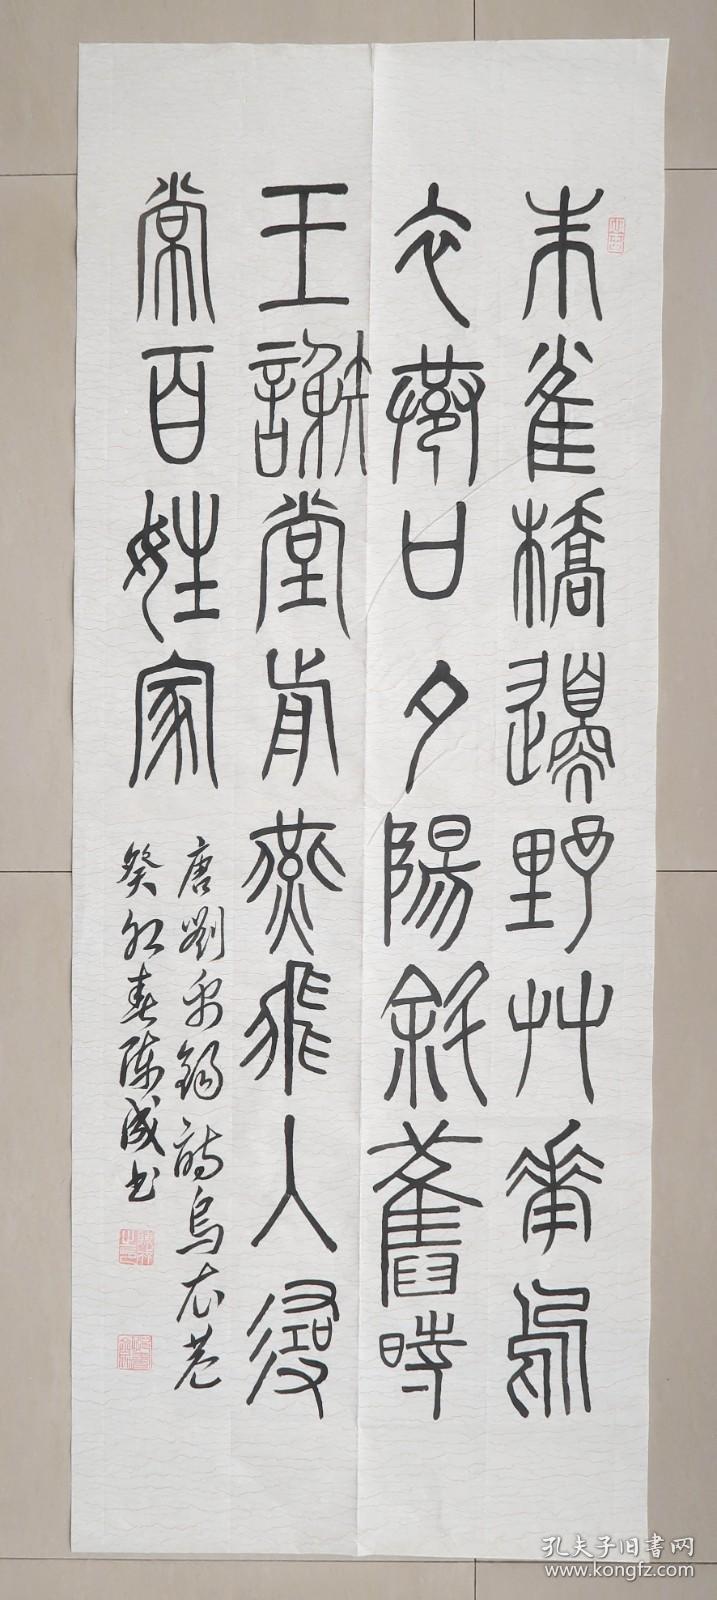 朱雀橋邊野艸華烏
衣巷口夕陽斜舊時
王謝堂前燕飛入尋
常百姓家
唐劉禹錫詩烏衣巷
癸卯春陳成书
孔夫子旧书网
www.kongfz.com